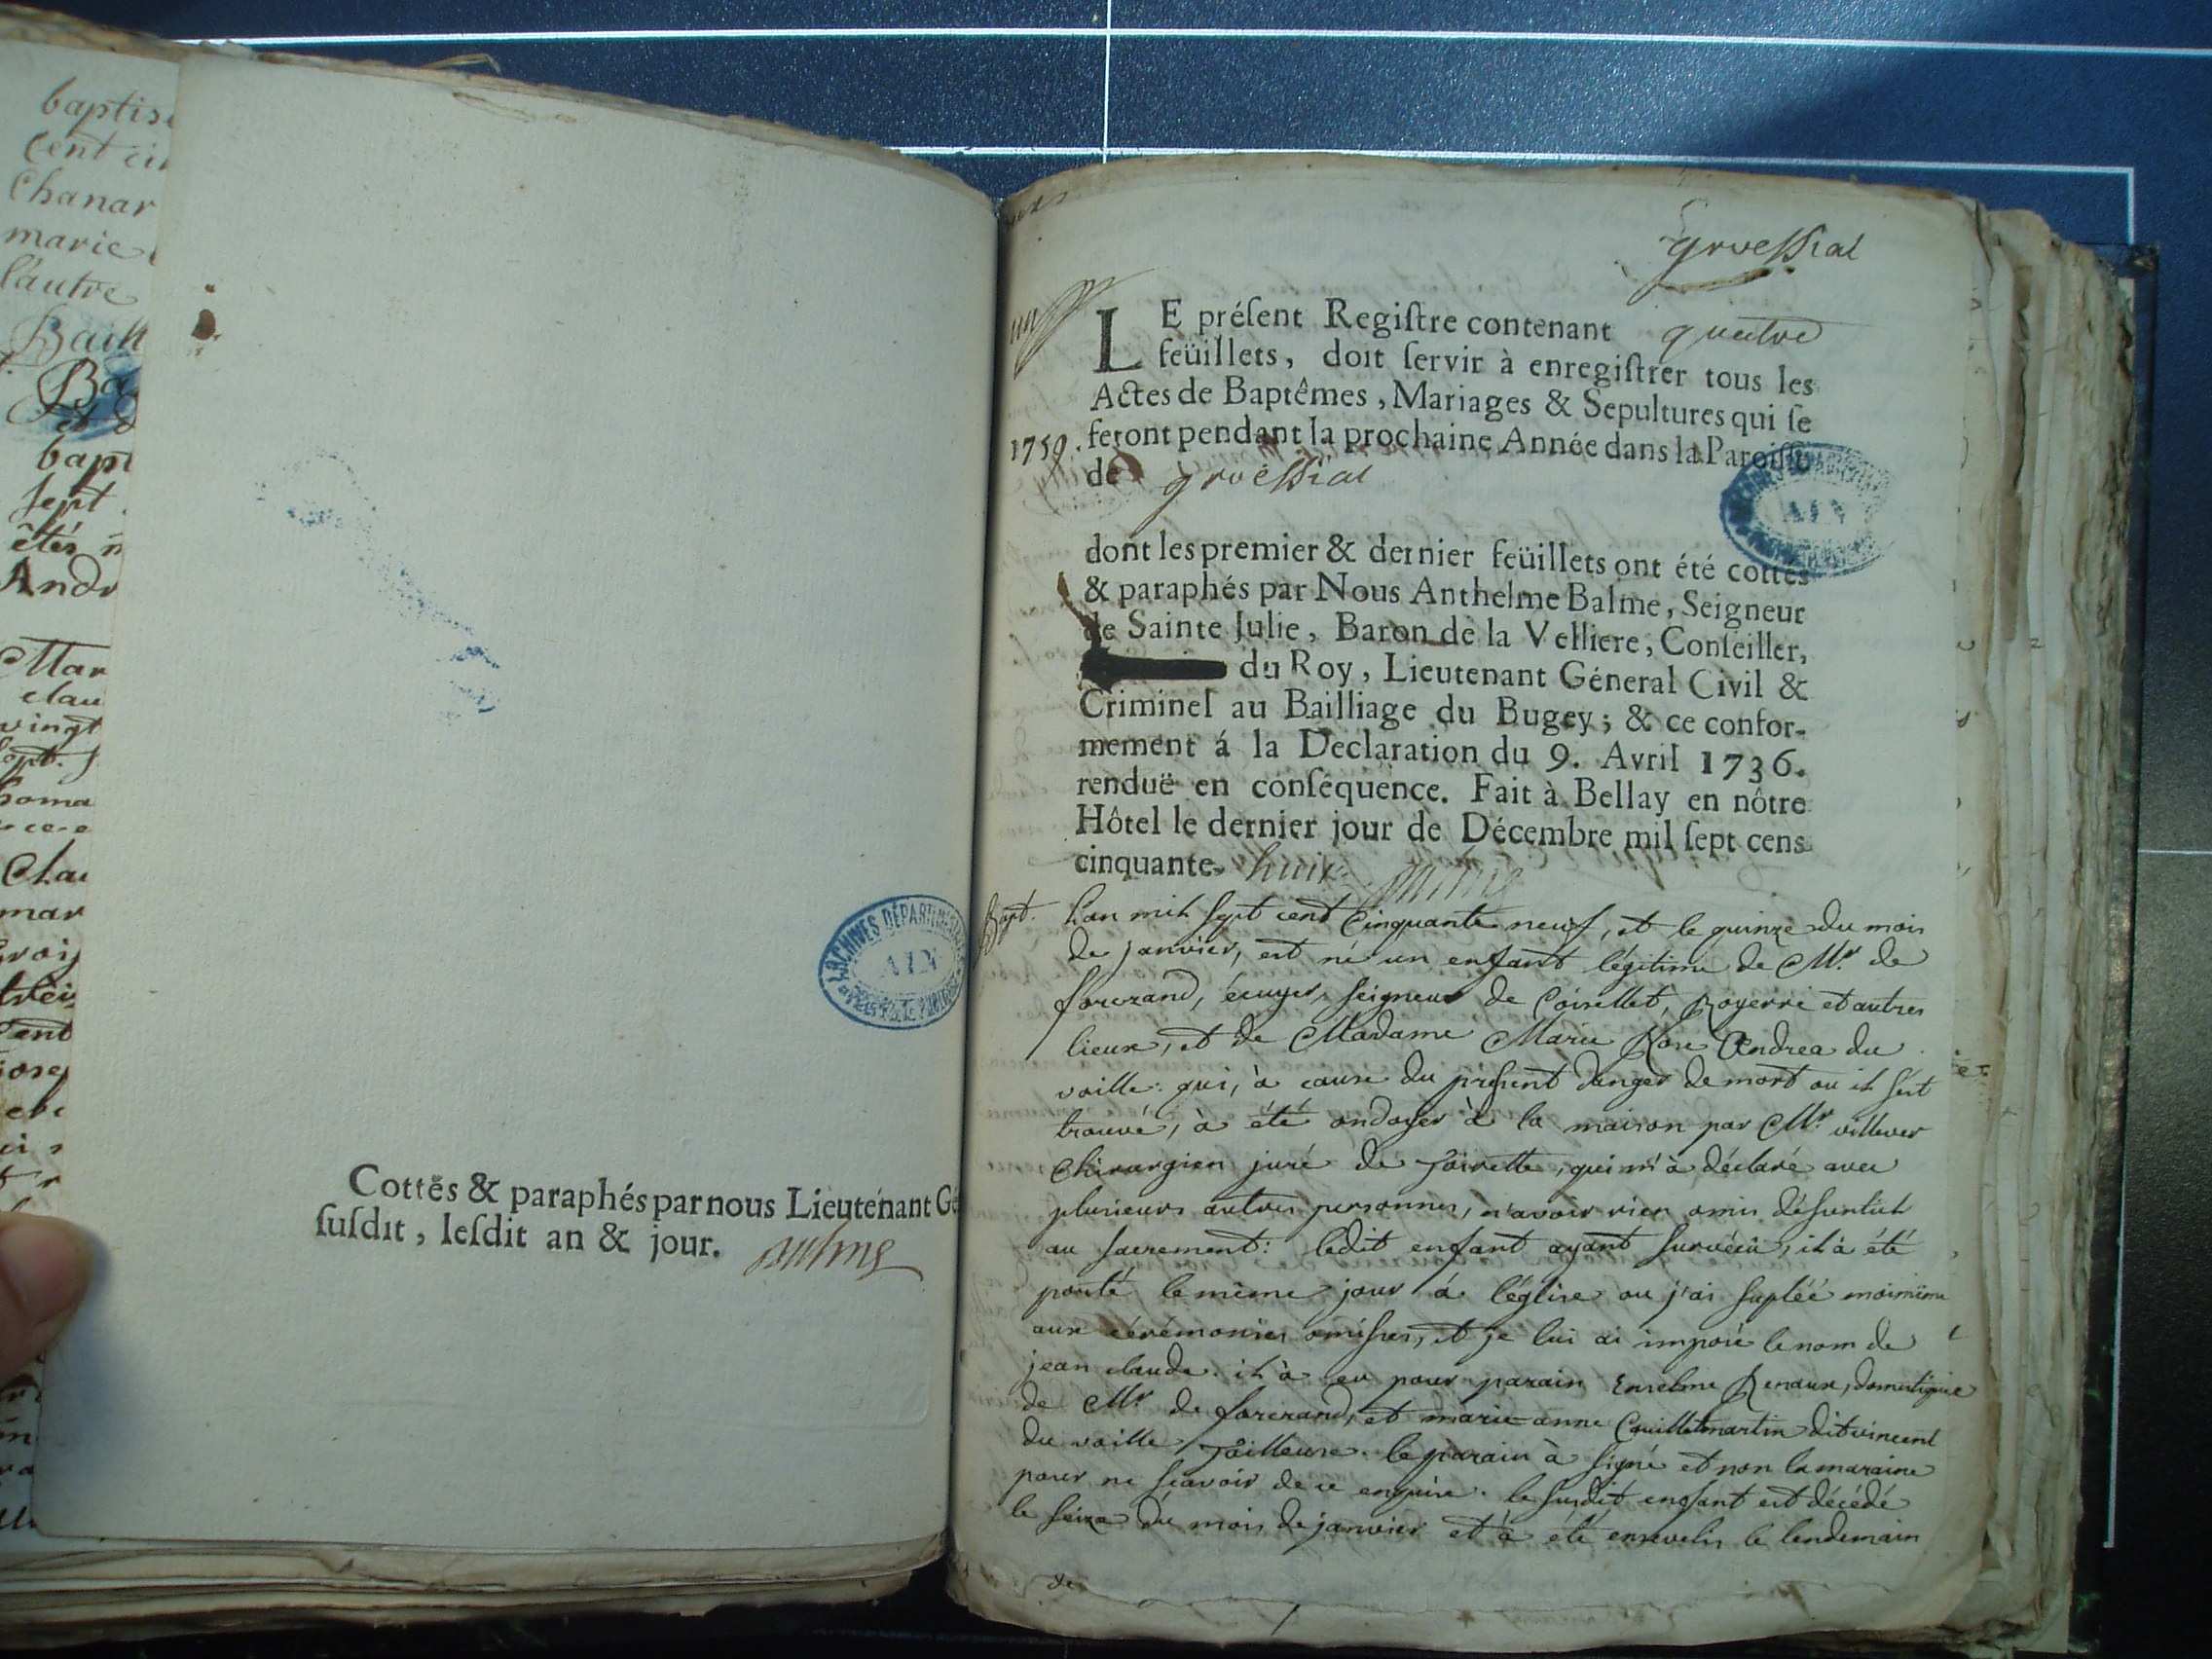 baptis
Cent ci
Chanar
marie
l'autre
Baill
Ba
et
bapt
sept
étés n
Andr
Mar
clau
vingt
sept.
homa
Cla
mar
Cent
Cottés & paraphés par nous Lieutenant Gé
suſdit, leſdit an & jour. Balme
ARCHIVES DÉPARTEMENTALES
AIN
groeſsial
un
LE préſent Regiſtre contenant quatre
feüillets, doit ſervir à enregiſtrer tous les
Actes de Baptêmes, Mariages & Sepultures qui ſe
1759. feront pendant la prochaine Année dans la Paroiſſe
de groeſsial
AIN
dont les premier & dernier feüillets ont été cottés
& paraphés par Nous Anthelme Balme, Seigneur
de Sainte Julie, Baron de la Velliere, Conſeiller,
du Roy, Lieutenant Géneral Civil &
Criminel au Bailliage du Bugey; & ce confor-
mement á la Declaration du 9. Avril 1736.
renduë en conſéquence. Fait à Bellay en nôtre
Hôtel le dernier jour de Décembre mil ſept cens
cinquante- huit. Balme
Bapt. L'an mil sept cent Cinquante neuf, et le quinze du mois
de janvier, est né un enfant légitime de Mr. de
forcrand, écuyer, seigneur de Coisellet, Royerré et autres
lieux, et de Madame Marie Rose Andrea du
voille: qui, à cause du présent danger de mort ou il s'est
trouvé, à été ondoyer à la maison par Mr. villever
Chirurgien juré de Thoirette, qui m'à déclaré avec
plusieurs autres personnes, n'avoir rien omis d'éssentiel
au sacrement: ledit enfant ayant survécû, il à été
porté le même jour á l'église ou j'ai suplée moimême
aux cérémonies omises, et je lui ai imposé le nom de
jean claude. il à eu pour parain Enselme Renaux, domestique
de Mr. de forcrand, et marie-anne Cauilletmartin dit vincent
du voille, Tailleuse. le parain à signé et non la maraine
pour ne scavoir de ce enquise. le susdit enfant est décédé
le seize du mois de janvier et à été ensevelis le lendemain